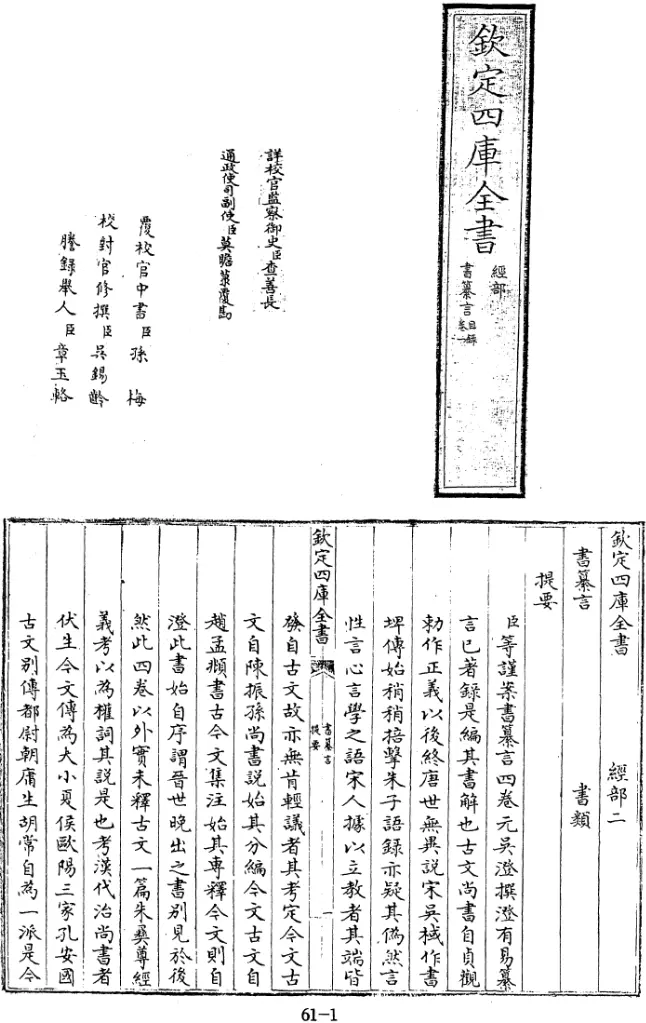 欽定四庫全書
經部
書纂言
目録
卷一
詳校官監察御史臣查善長
通政使司副使臣莫瞻菉覆勘
覆校官中書臣孫梅
校對官修撰臣吳錫齡
謄録舉人臣章玉輅
欽定四庫全書 經部二
書纂言 書類
提要
臣等謹案書纂言四卷元吳澄撰澄有易纂
言已著録是編其書解也古文尚書自貞觀
勅作正義以後終唐世無異說宋吳棫作書
埤傳始稍稍掊擊朱子語録亦疑其偽然言
性言心言學之語宋人據以立教者其端皆
欽定四庫全書
書纂言
提要
一
發自古文故亦無肯輕議者其考定今文古
文自陳振孫尚書説始其分編今文古文自
趙孟頫書古今文集注始其專釋今文則自
澄此書始自序謂晉世晚出之書別見於後
然此四卷以外實未釋古文一篇朱彝尊經
義考以為權詞其説是也考漢代治尚書者
伏生今文傳為大小夏侯歐陽三家孔安國
古文別傳都尉朝庸生胡常自為一派是今
61-1